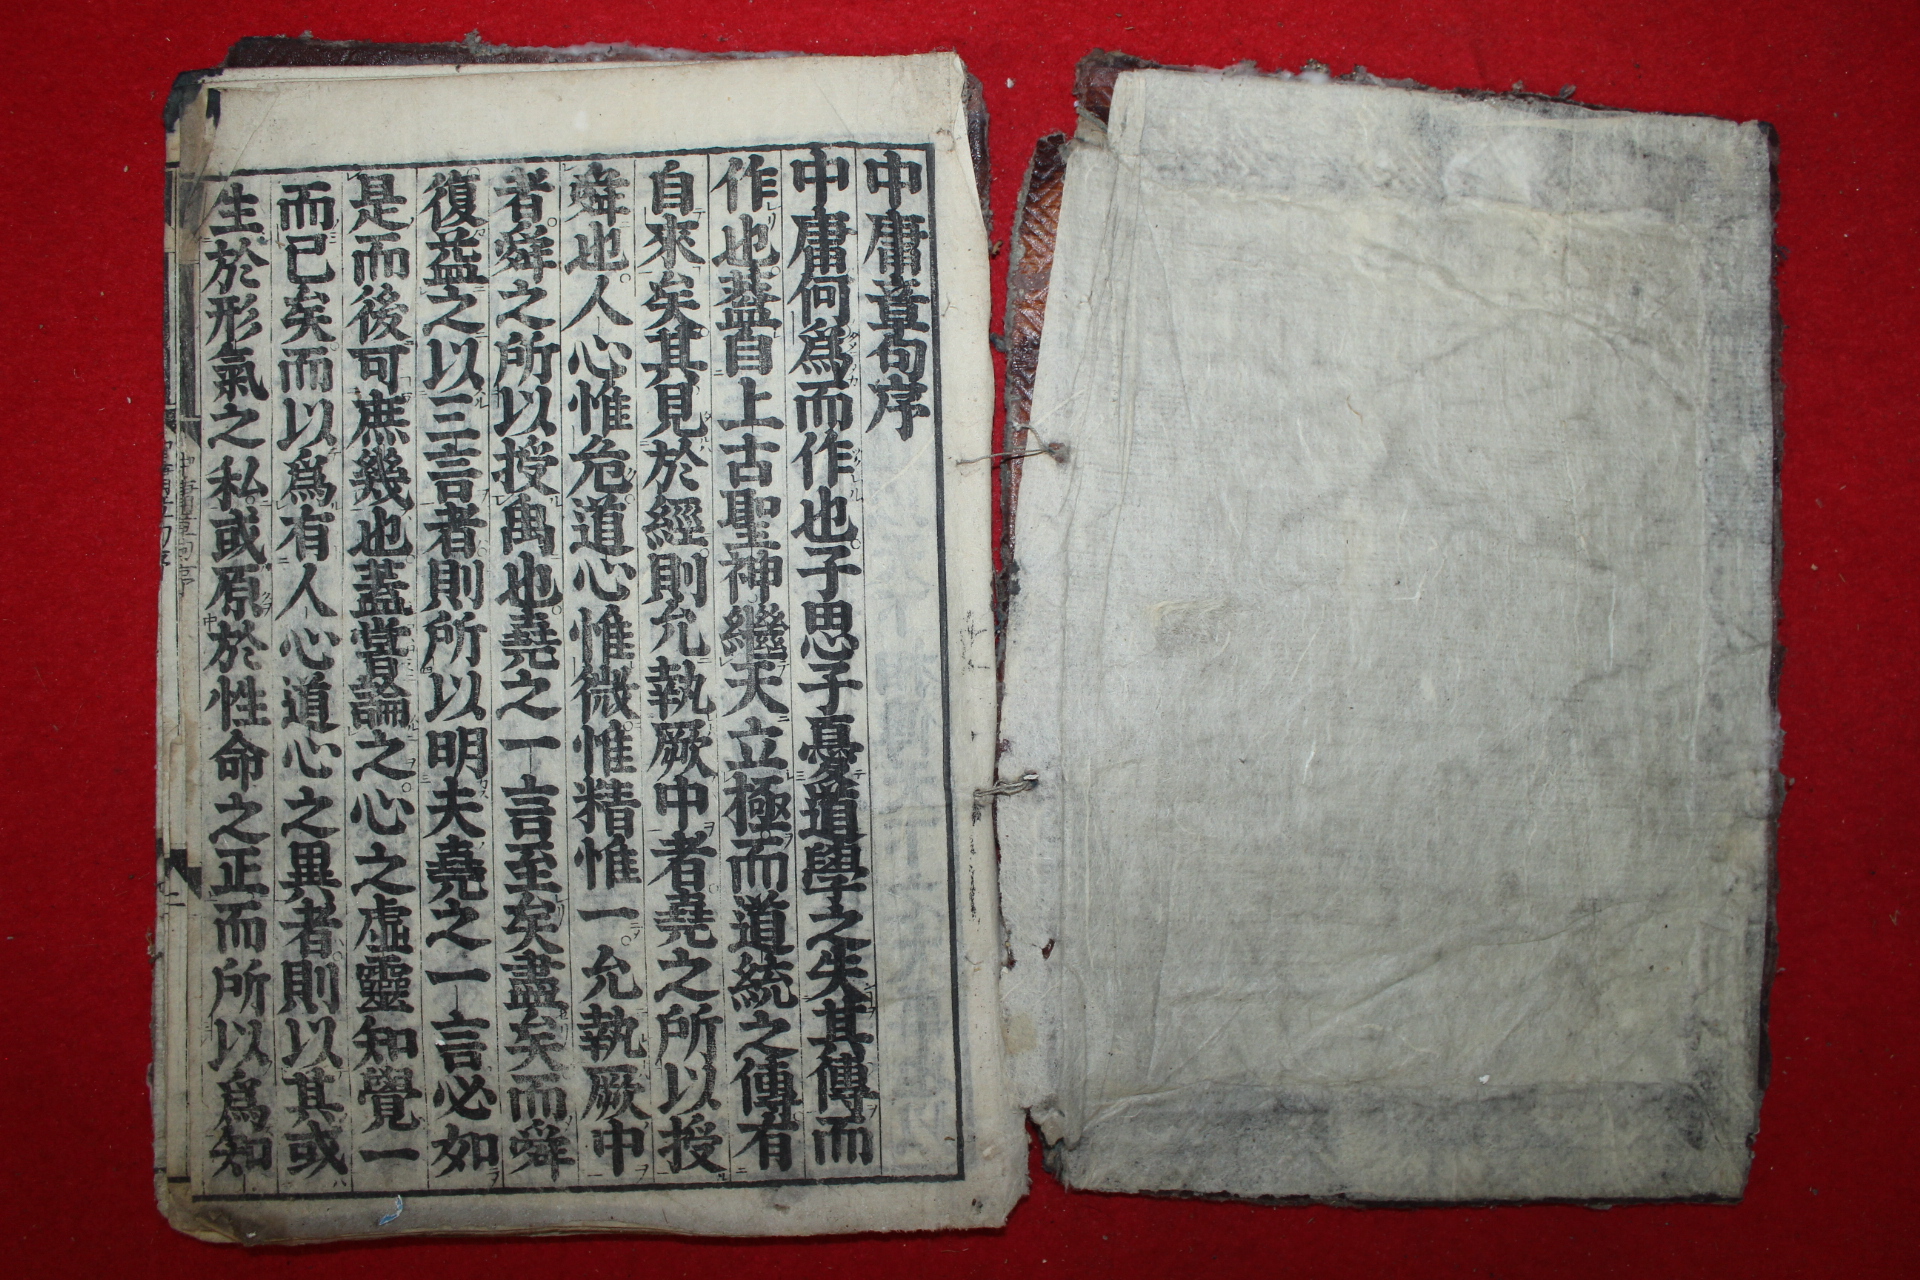 中庸章句序
中庸何爲而作也子思子憂道學之失其傳而
作也蓋自上古聖神繼天立極而道統之傳有
自來矣其見於經則允執厥中者堯之所以授
舜也人心惟危道心惟微惟精惟一允執厥中
者舜之所以授禹也堯之一言至矣盡矣而舜
復益之以三言者則所以明夫堯之一言必如
是而後可庶幾也蓋嘗論之心之虛靈知覺一
而已矣而以爲有人心道心之異者則以其或
生於形氣之私或原於性命之正而所以爲知
中庸章句序